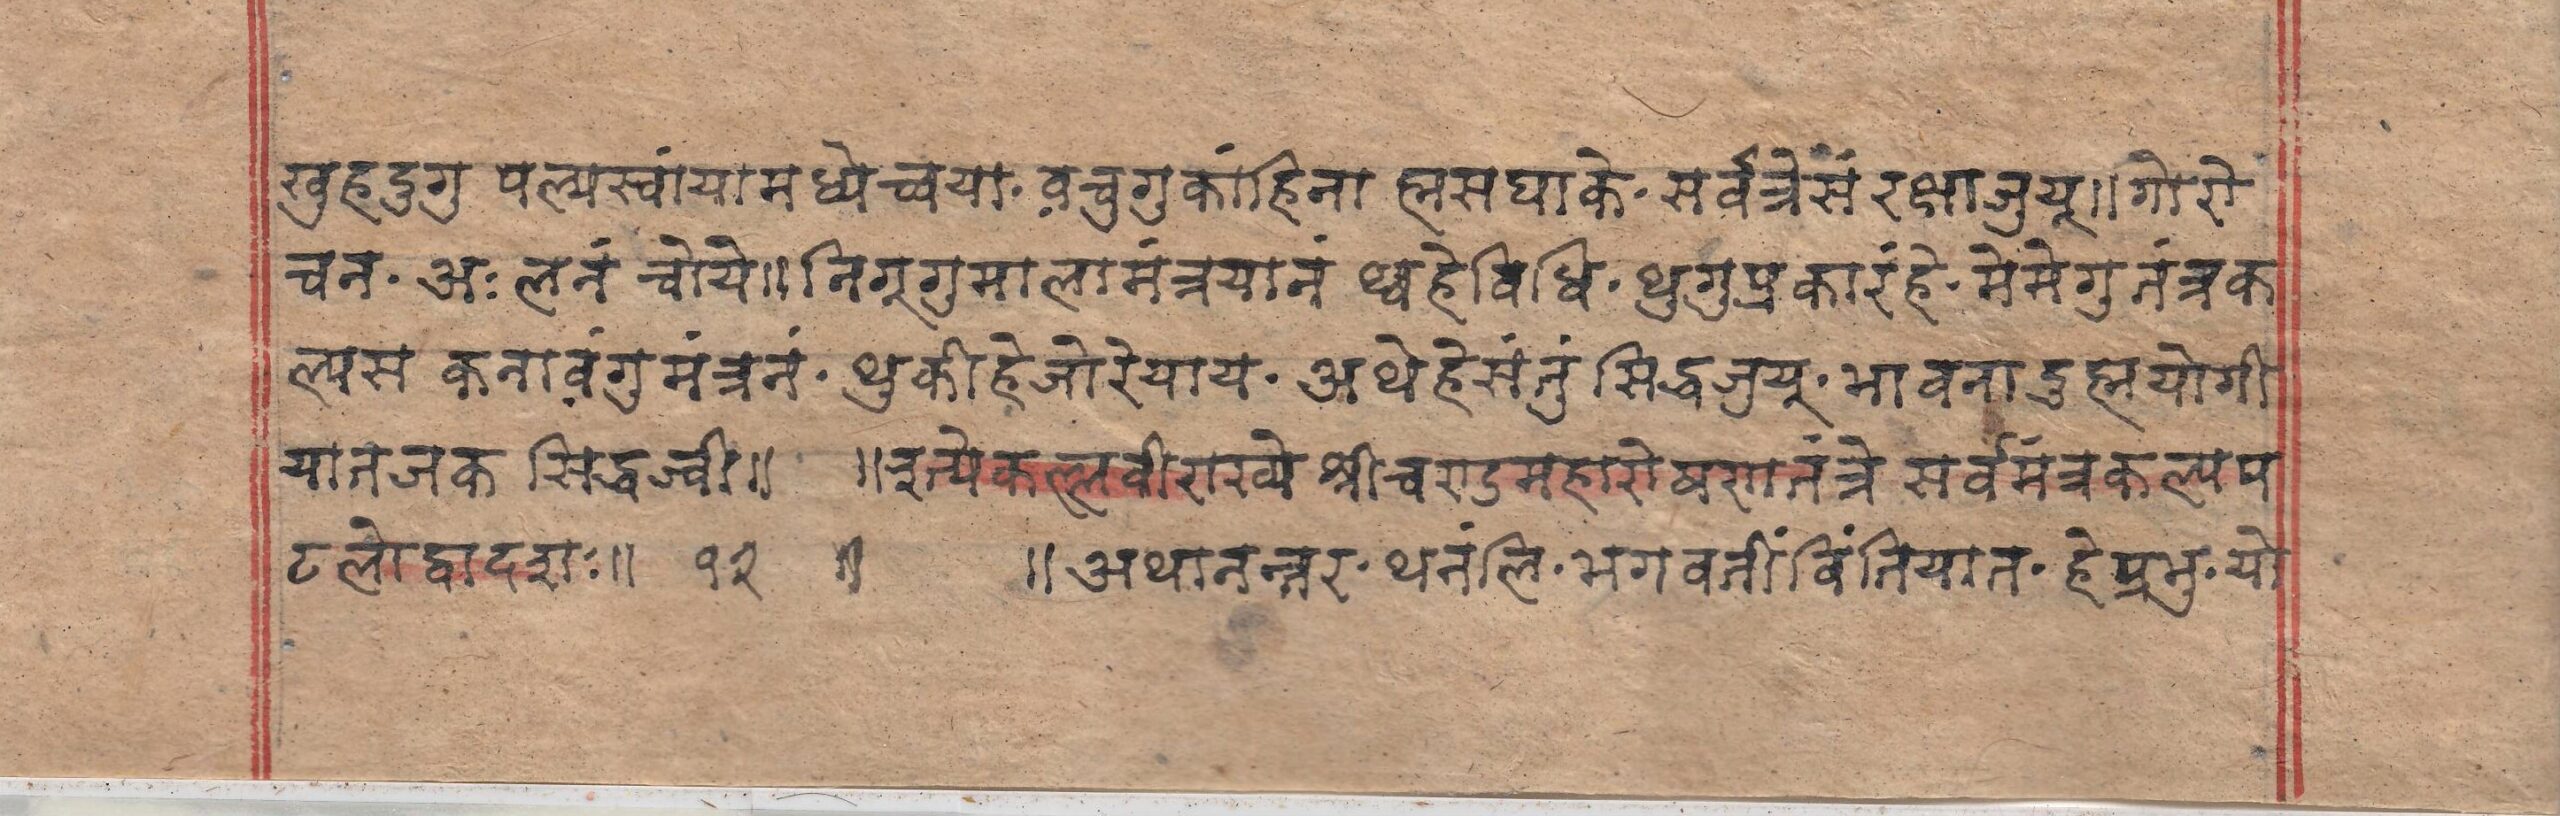 खुहदुगु पल्यस्वांयामध्येच्वया· व़चुगुकांहिना ह्मसघाके· सर्वत्रेसं रक्षाजुयू॥गोरो
चन· अःलनं चोये॥निगूगुमालामंत्रयानं थ्वहेविधि· थुगुप्रकारंहे· मेमेगुतंत्रक
ल्पस कनाव़ंगुमंत्रनं· थुकीहेजोरेयाय· अथेहेसंतुं सिद्धजुयू· भावनादुह्मयोगी
यातजक सिद्धज्वी॥ ॥इत्येकल्लवीराख्ये श्रीचण्डमहारोषणतंत्रे सर्वमंत्रकल्पप
टलोद्वादशः॥ १२ ॥ ॥अथानन्तर· थनंलि· भगवतीं विंतियात· हेप्रभु· यो